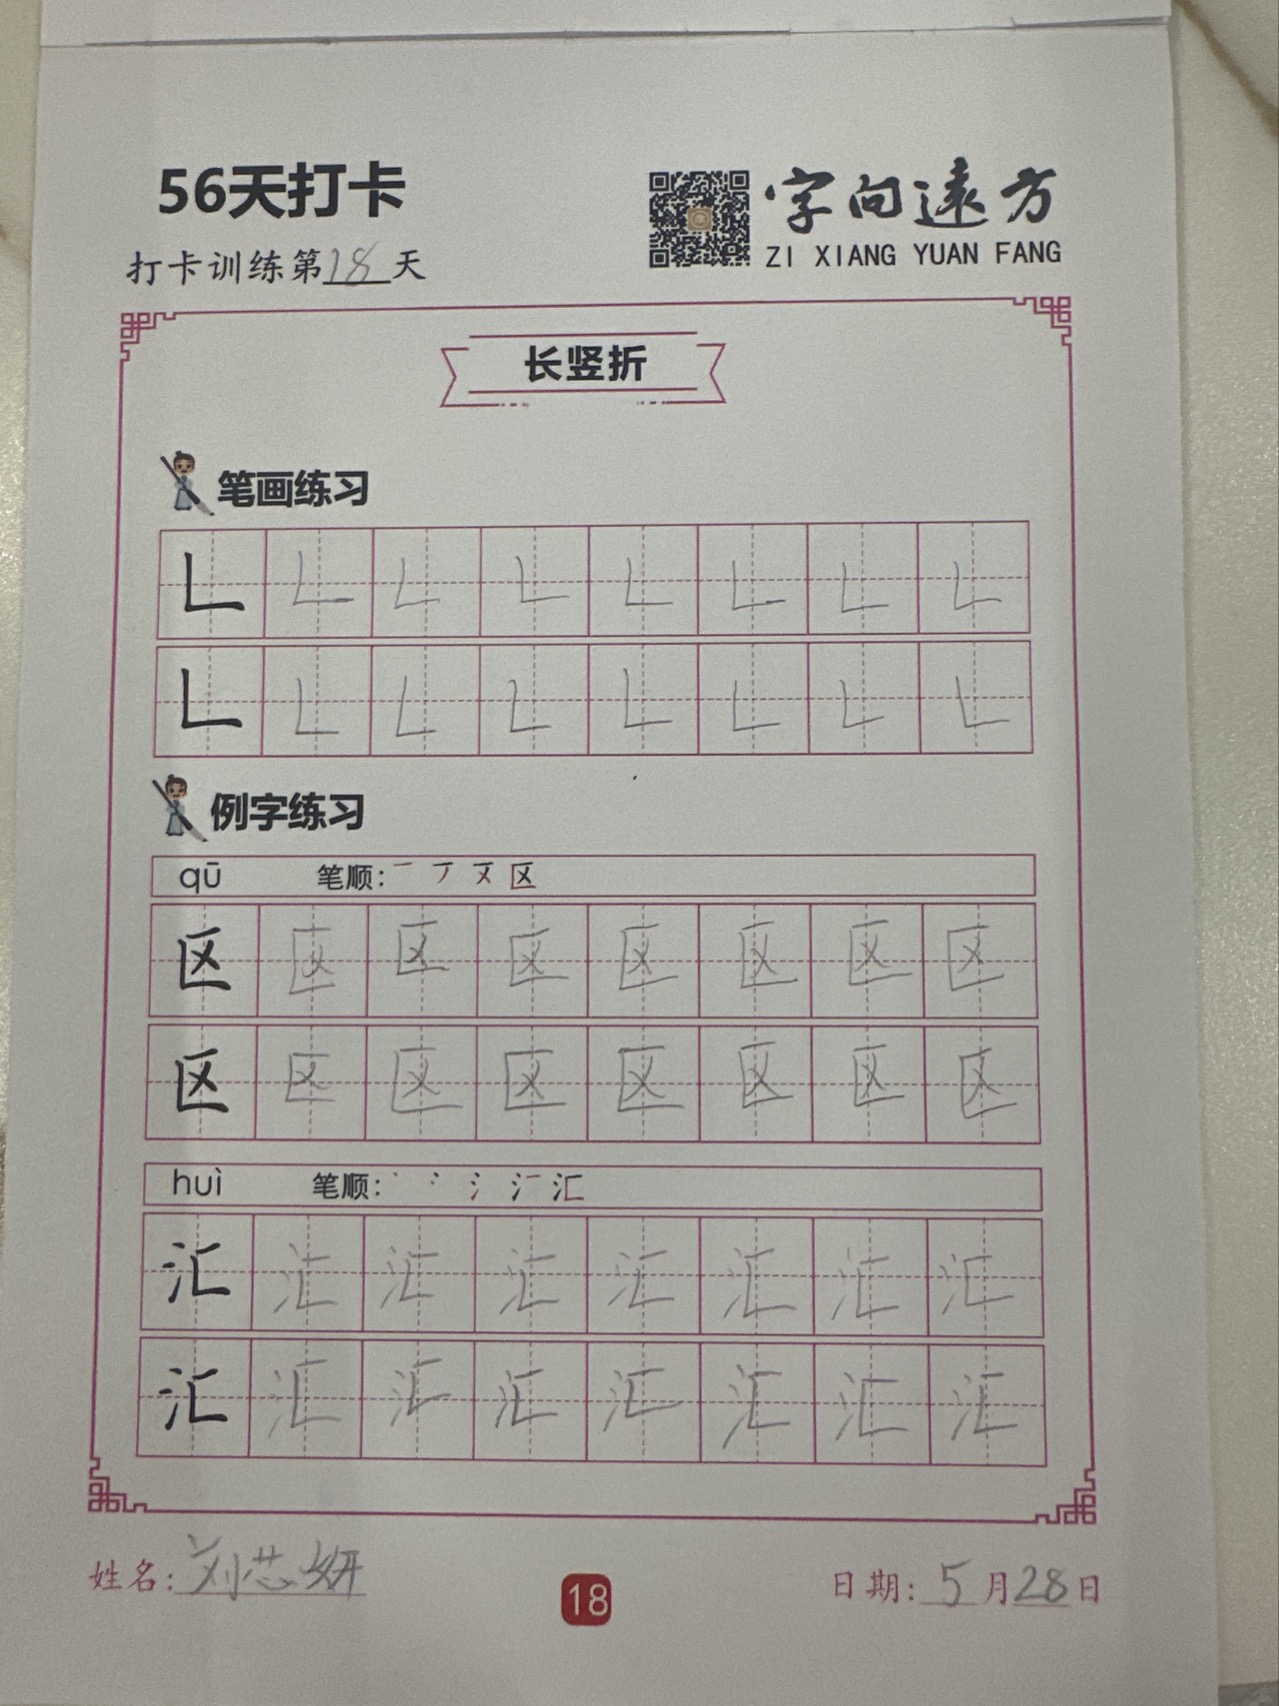 56天打卡
字向远方
ZI XIANG YUAN FANG
打卡训练第18天
长竖折
笔画练习
𠃊 𠃊 𠃊 𠃊 𠃊 𠃊 𠃊 𠃊
𠃊 𠃊 𠃊 𠃊 𠃊 𠃊 𠃊 𠃊
例字练习
qū 笔顺: 一 丆 区
区 区 区 区 区 区 区 区
区 区 区 区 区 区 区 区
huì 笔顺: 丶 冫 氵 汇
汇 汇 汇 汇 汇 汇 汇 汇
汇 汇 汇 汇 汇 汇 汇 汇
姓名: 刘芯妍
18
日期: 5月28日